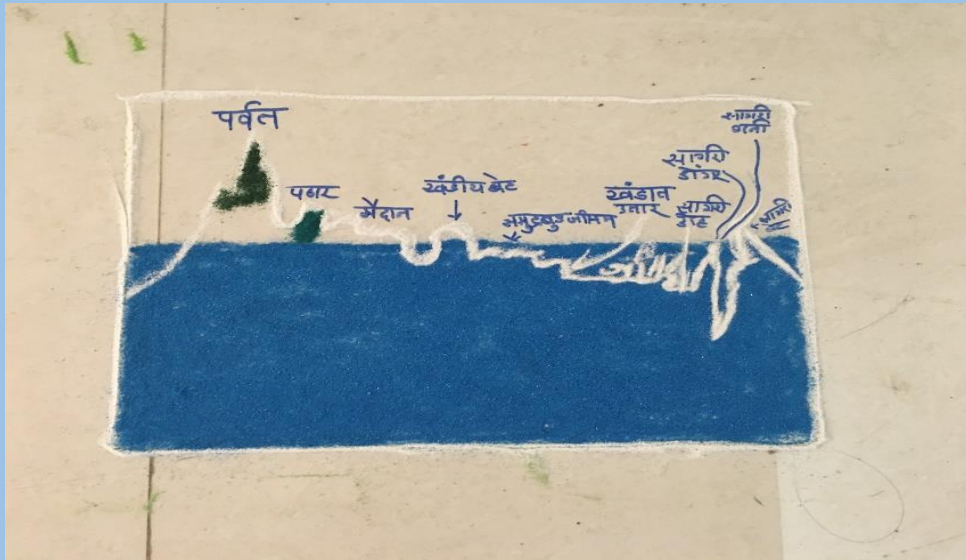 पर्वत
पठार
मैदान
खंडीय बेट
समुद्रबुड जमीन
खंडान्त
उतार
सागरी
डोंगर
सागरी
बेट
सागरी
गर्ता